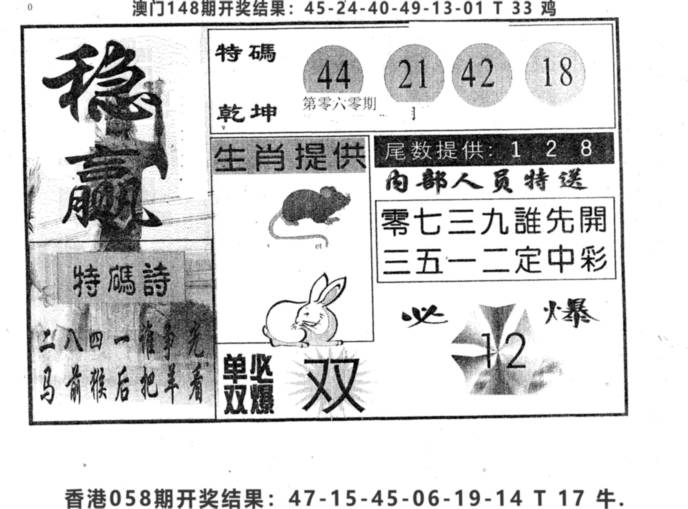 澳门148期开奖结果：45-24-40-49-13-01 T 33 鸡
稳赢
特碼
乾坤
44 21 42 18
第零六零期
生肖提供
尾数提供: 1 2 8
内部人员特送
零七三九誰先開
三五一二定中彩
特碼詩
二八四一谁争光
马前猴后把羊看
必爆
12
单双
必爆
双
香港058期开奖结果：47-15-45-06-19-14 T 17 牛.